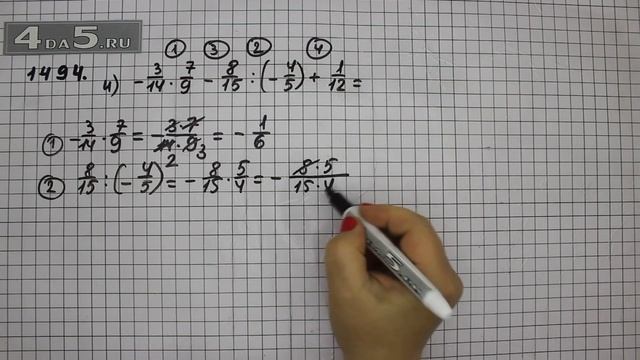 4DA5.RU
① ③ ② ④
1494. и) -3/14 · 7/9 - 8/15 : (-4/5) + 1/12 =
① -3/14 · 7/9 = - 3·7/14·9 2 3 = - 1/6
② 8/15 : (-4/5) = - 8/15 · 5/4 = - 8·5/15·4